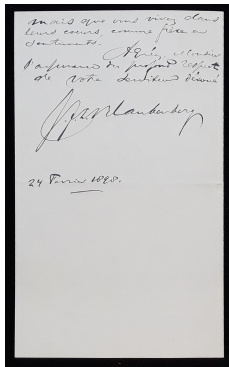 mais que vous vivez dans
leurs cœurs, comme frère en
sentiments.
Agréez Monsieur
l'assurance du profond respect
de votre serviteur dévoué
24 Fevrier 1898.